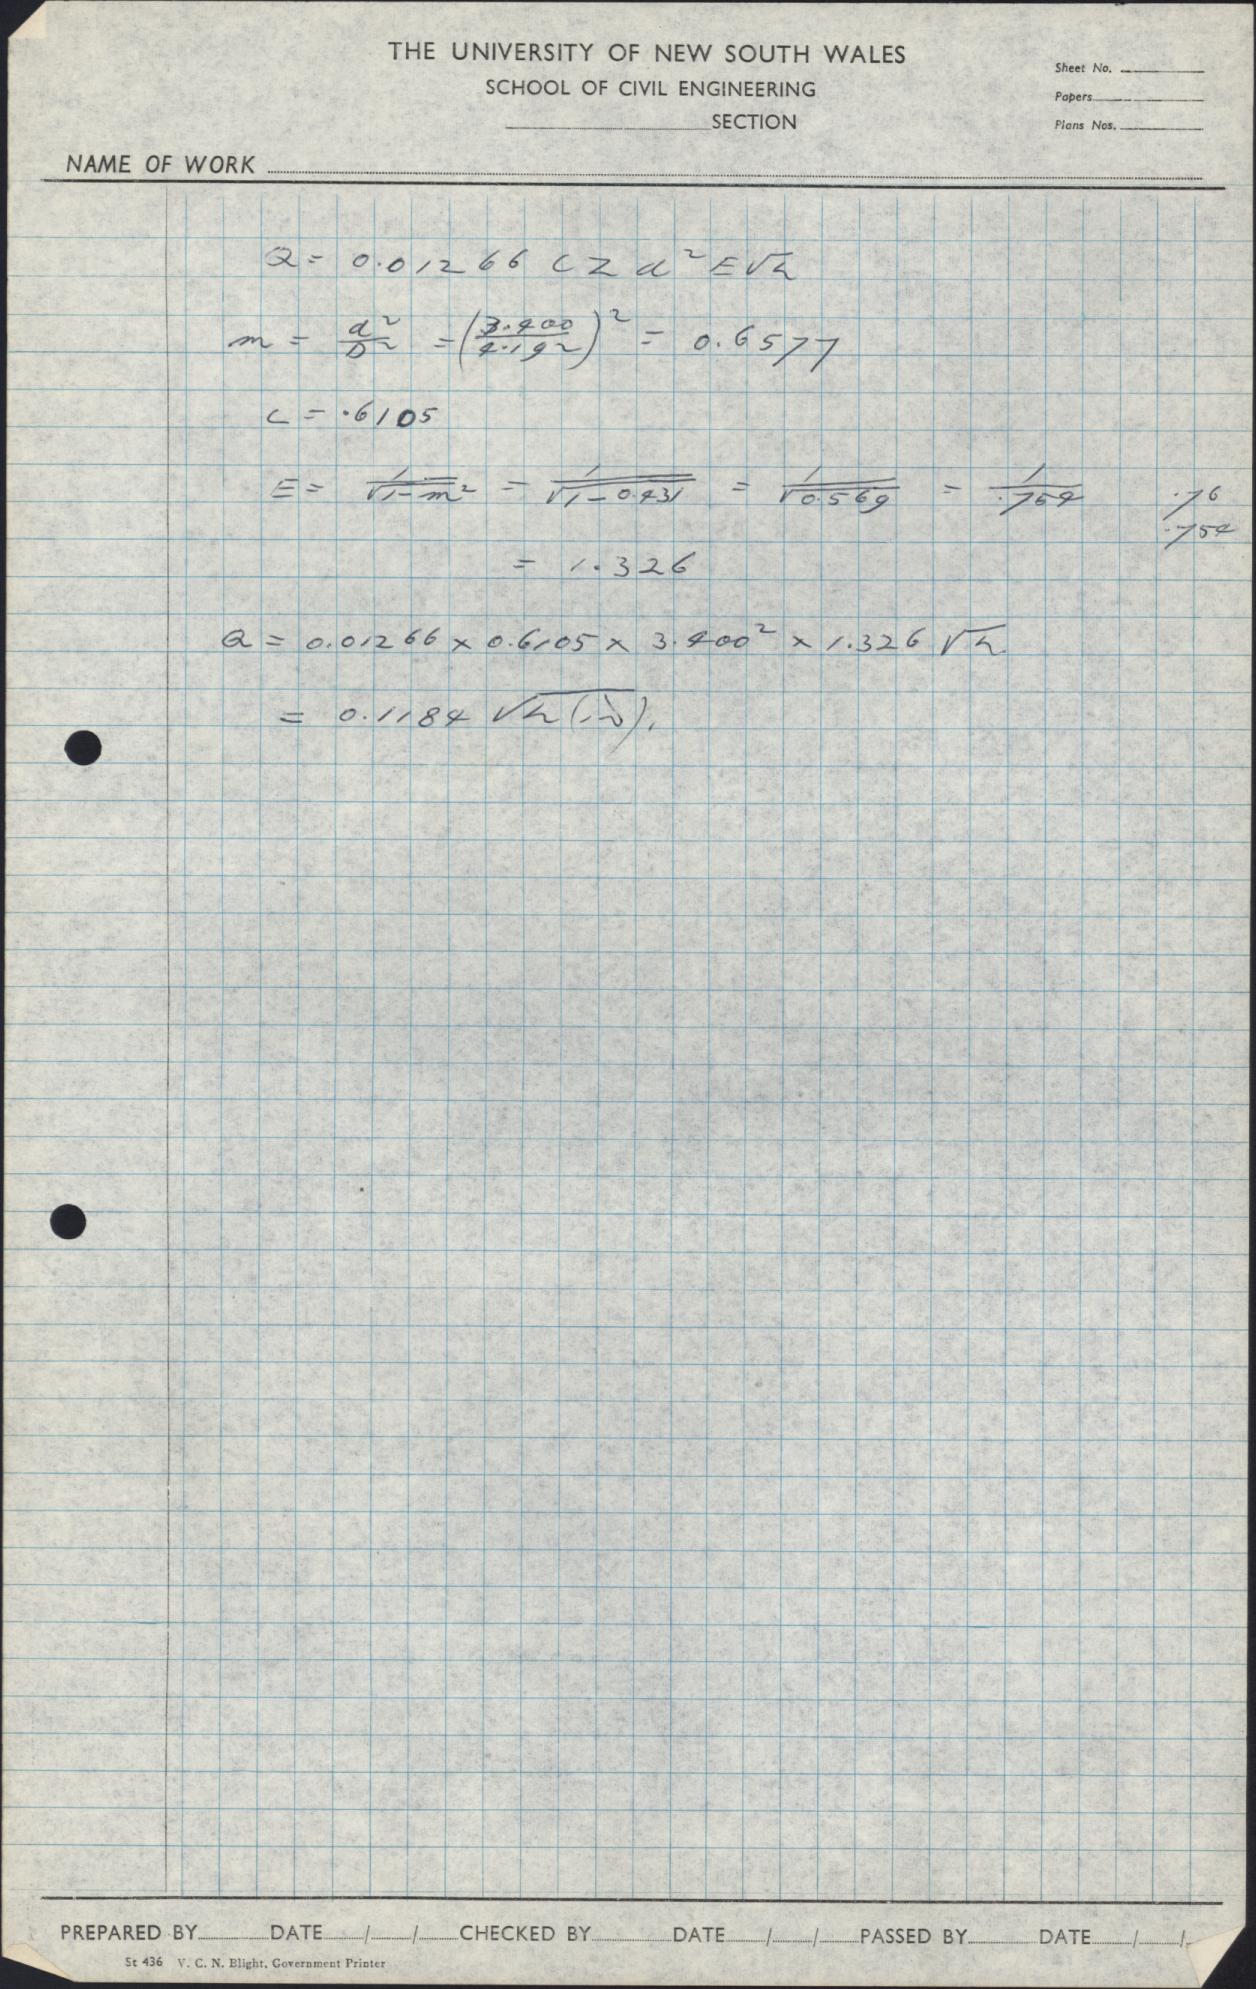 THE UNIVERSITY OF NEW SOUTH WALES
SCHOOL OF CIVIL ENGINEERING
SECTION
Sheet No.
Papers
Plans Nos.
NAME OF WORK
Q = 0.01266 C Z d² E √h
m = d²/D² = (3.400/4.192)² = 0.6577
C = .6105
E = 1/√(1-m²) = 1/√(1-0.431) = 1/√0.569 = 1/.754
.76
.754
= 1.326
Q = 0.01266 × 0.6105 × 3.400² × 1.326 √h
= 0.1184 √h(in).
PREPARED BY DATE / / CHECKED BY DATE / / PASSED BY DATE / /
St 436 V. C. N. Blight, Government Printer